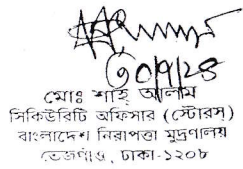 ৩০/৭/২৪
মোঃ শাহ্ আলাম
সিকিউরিটি অফিসার (স্টোরস)
বাংলাদেশ নিরাপত্তা মুদ্রণালয়
তেজগাঁও, ঢাকা-১২০৮